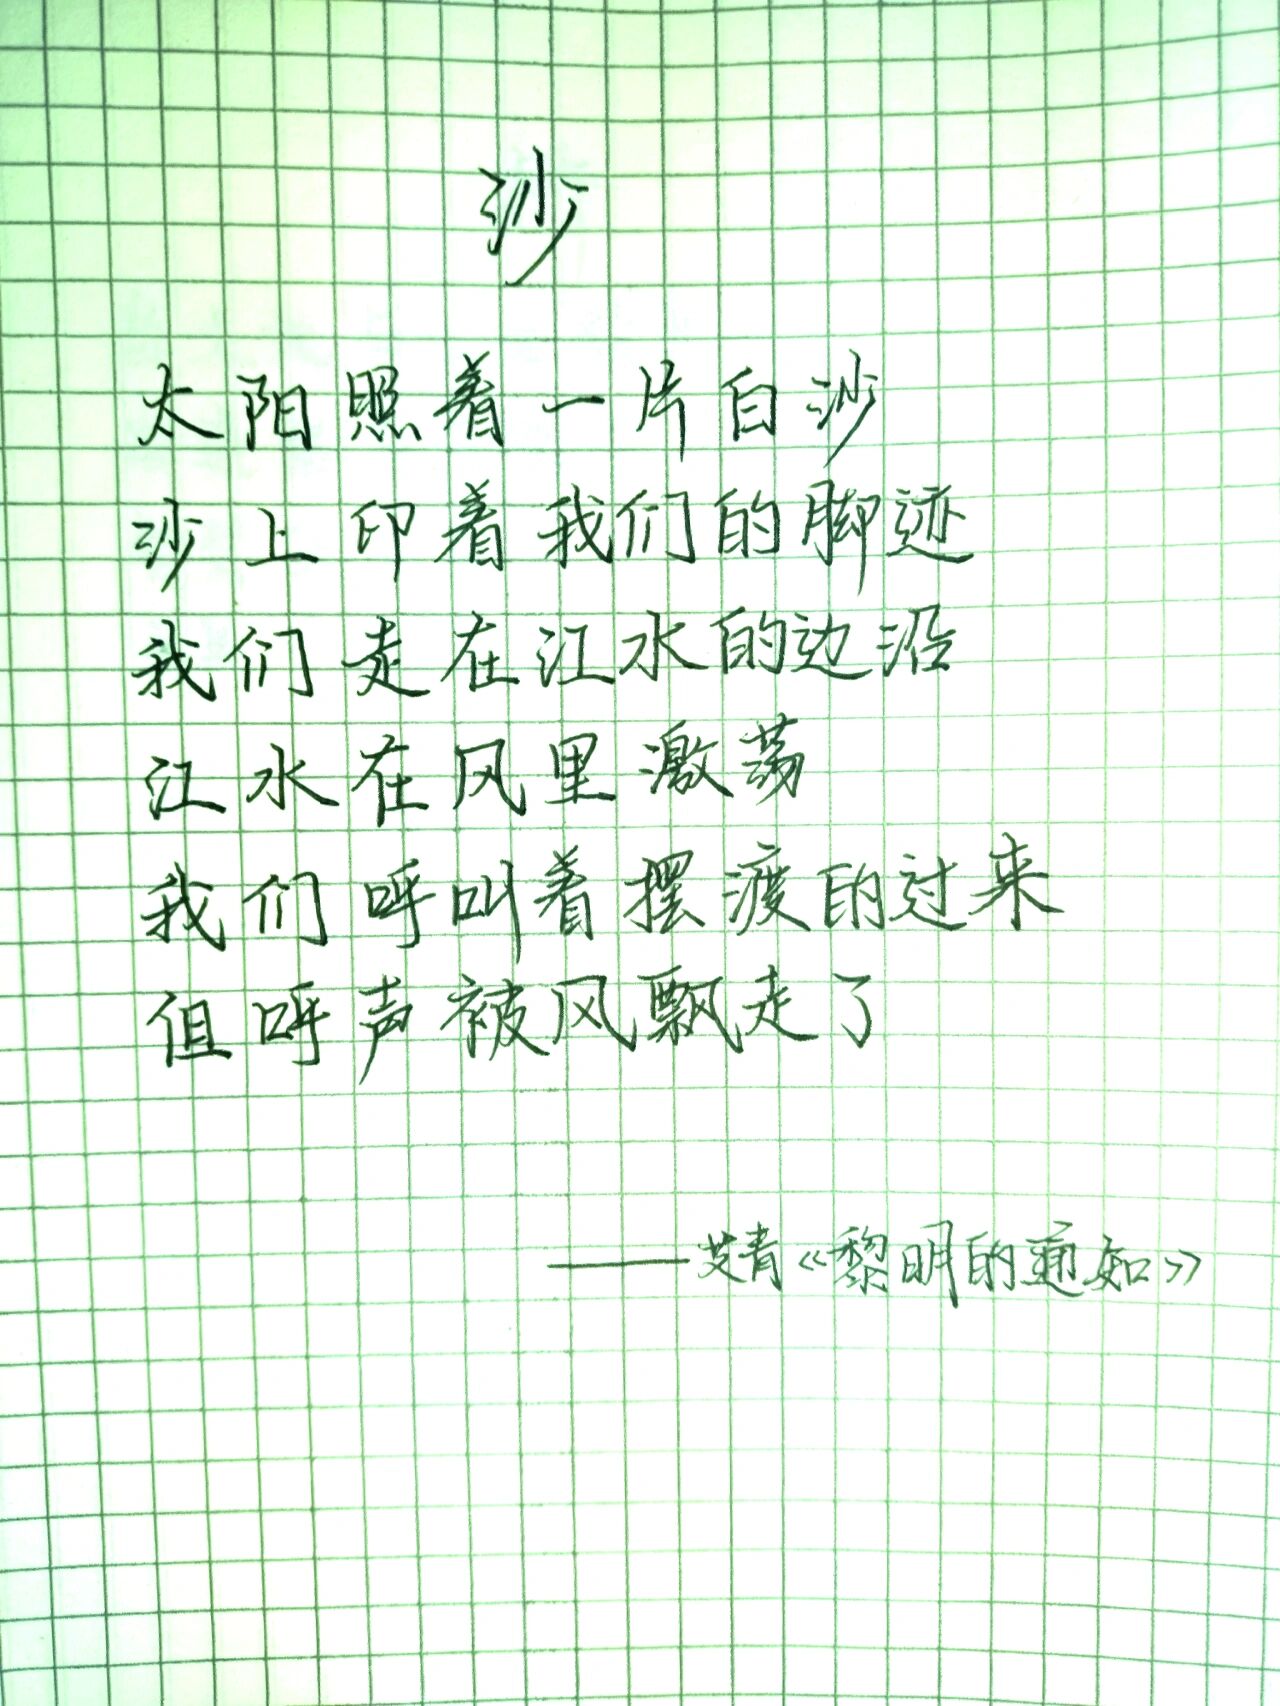 沙
太阳照着一片白沙
沙上印着我们的脚迹
我们走在江水的边沿
江水在风里激荡
我们呼叫着摆渡的过来
但呼声被风飘走了
——艾青《黎明的通知》